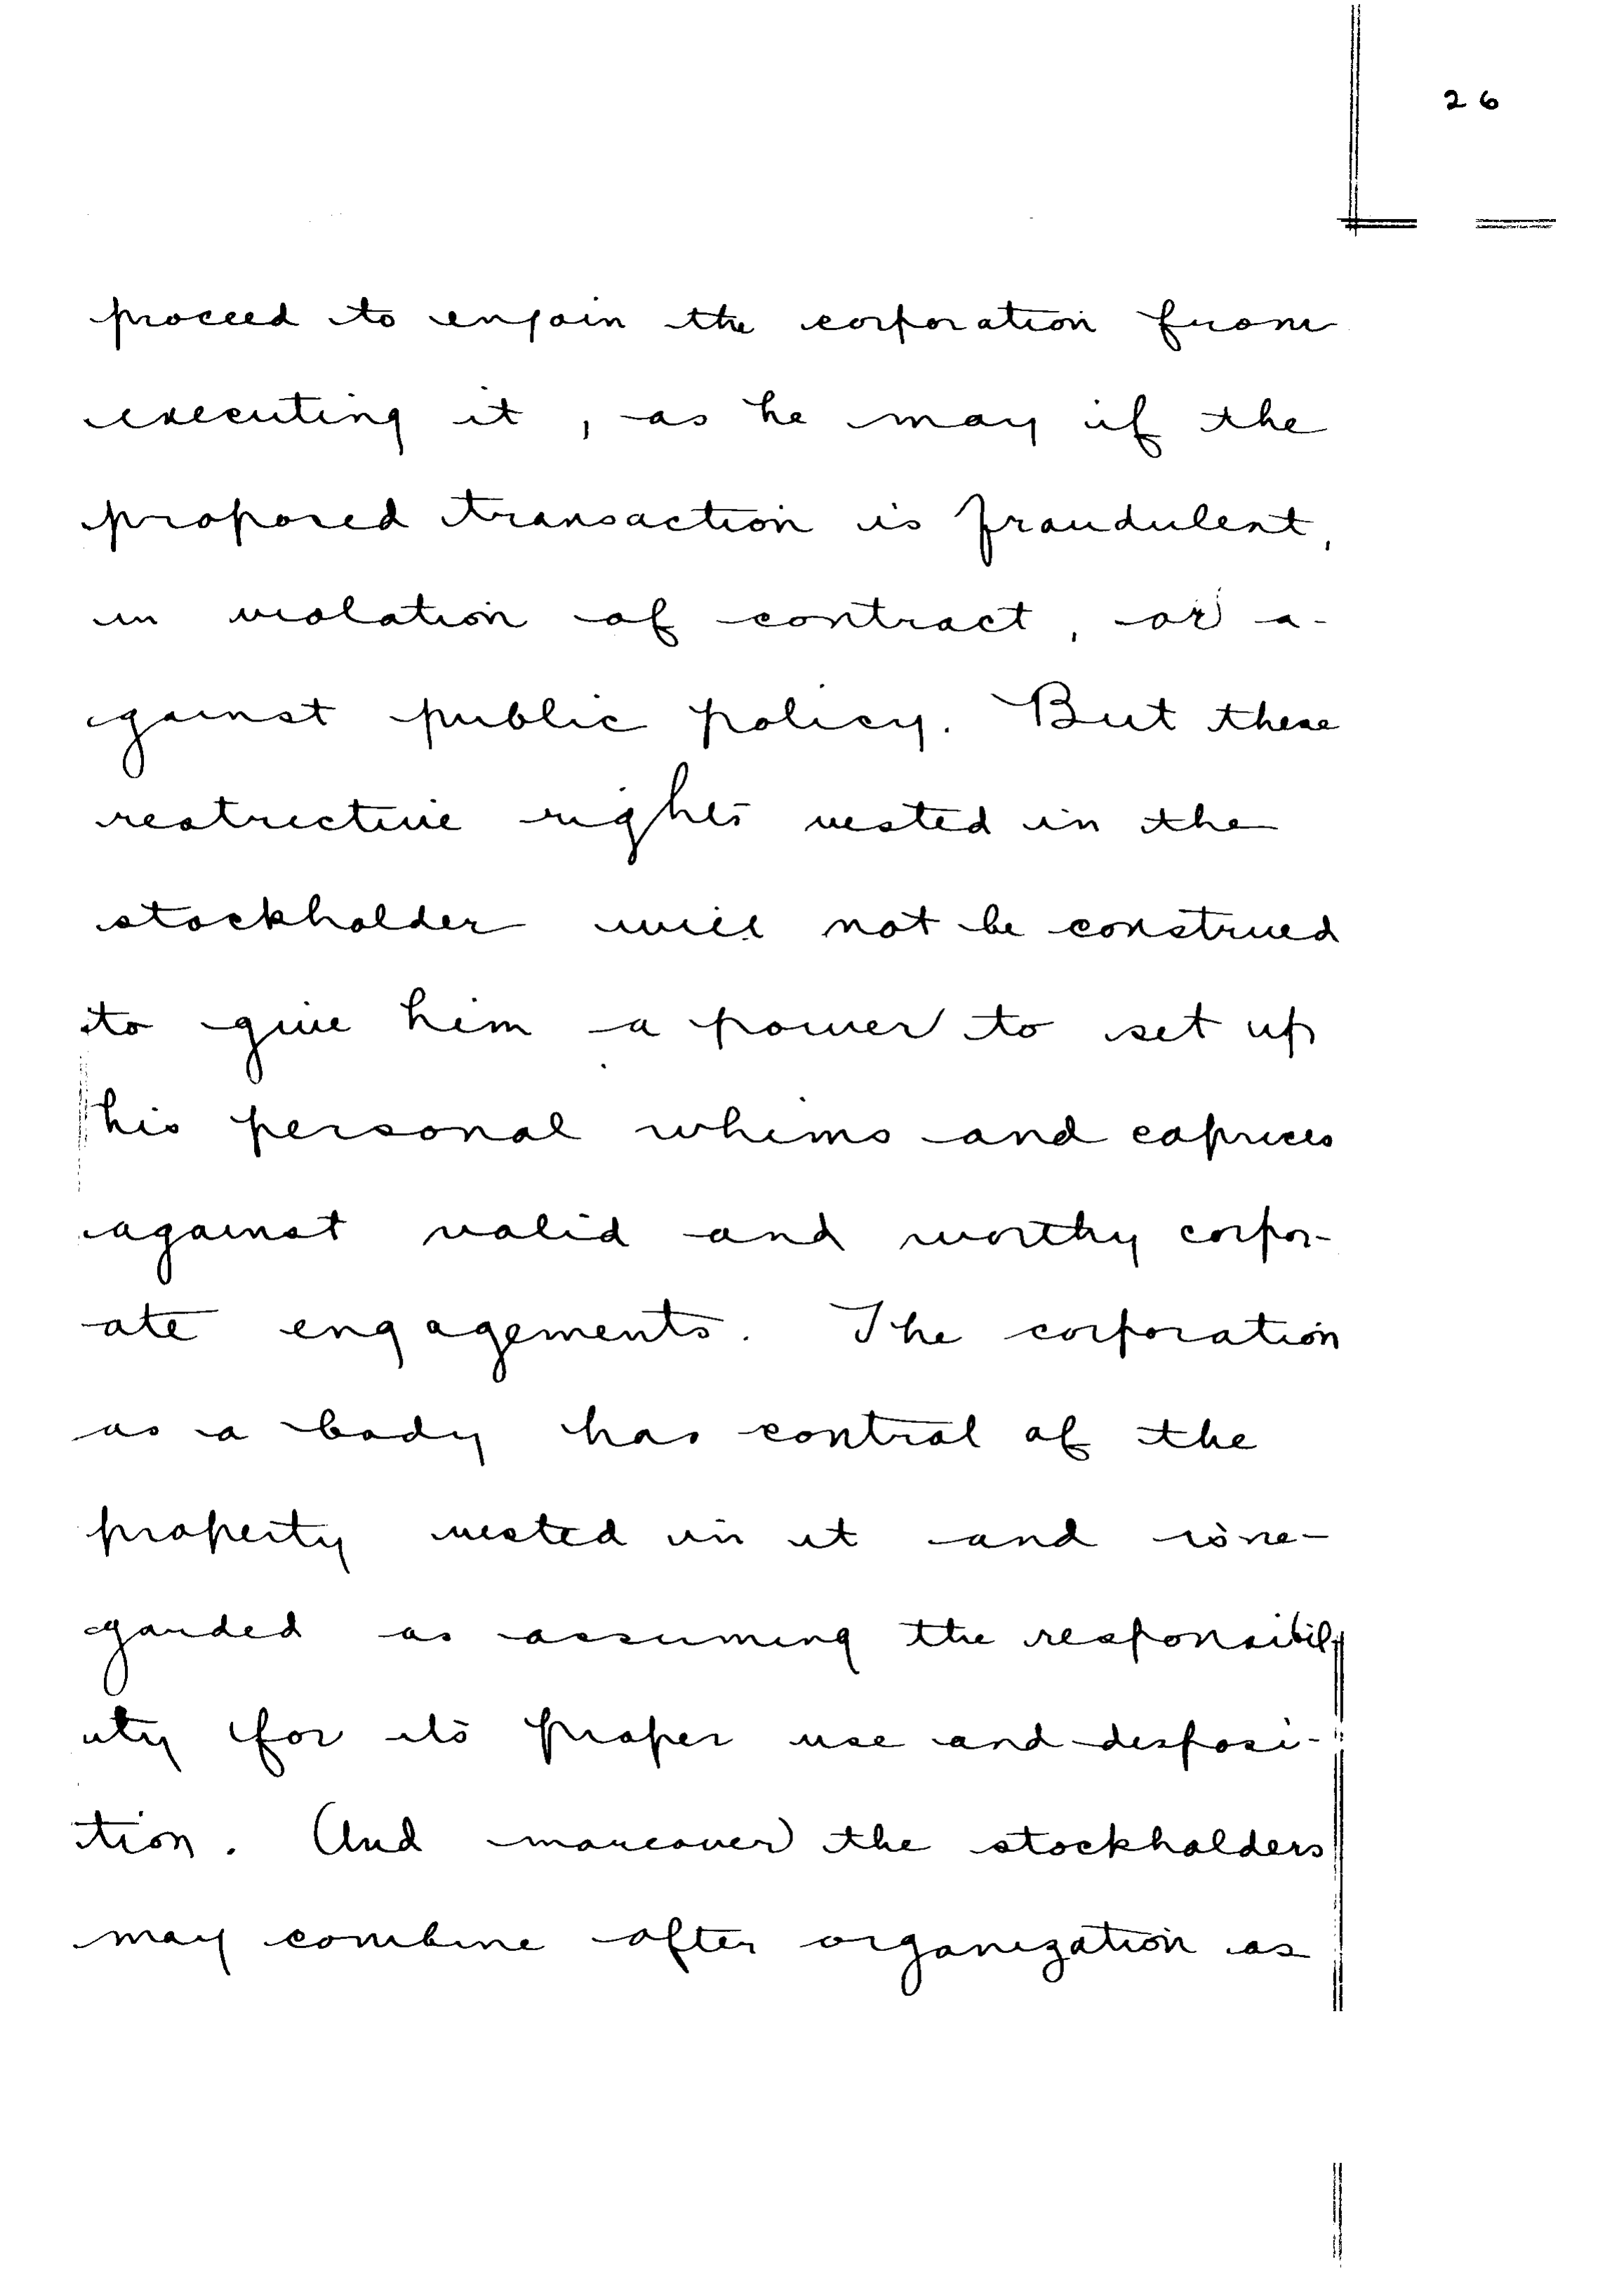 26
proceed to enjoin the corporation from
executing it, as he may if the
proposed transaction is fraudulent,
in violation of contract, or a-
gainst public policy. But these
restrictive rights vested in the
stockholder will not be construed
to give him a power to set up
his personal whims and caprices
against valid and worthy corpor-
ate engagements. The corporation
as a body has control of the
property vested in it and is re-
garded as assuming the responsibil-
ity for its proper use and disposi-
tion. And moreover the stockholders
may combine after organization as